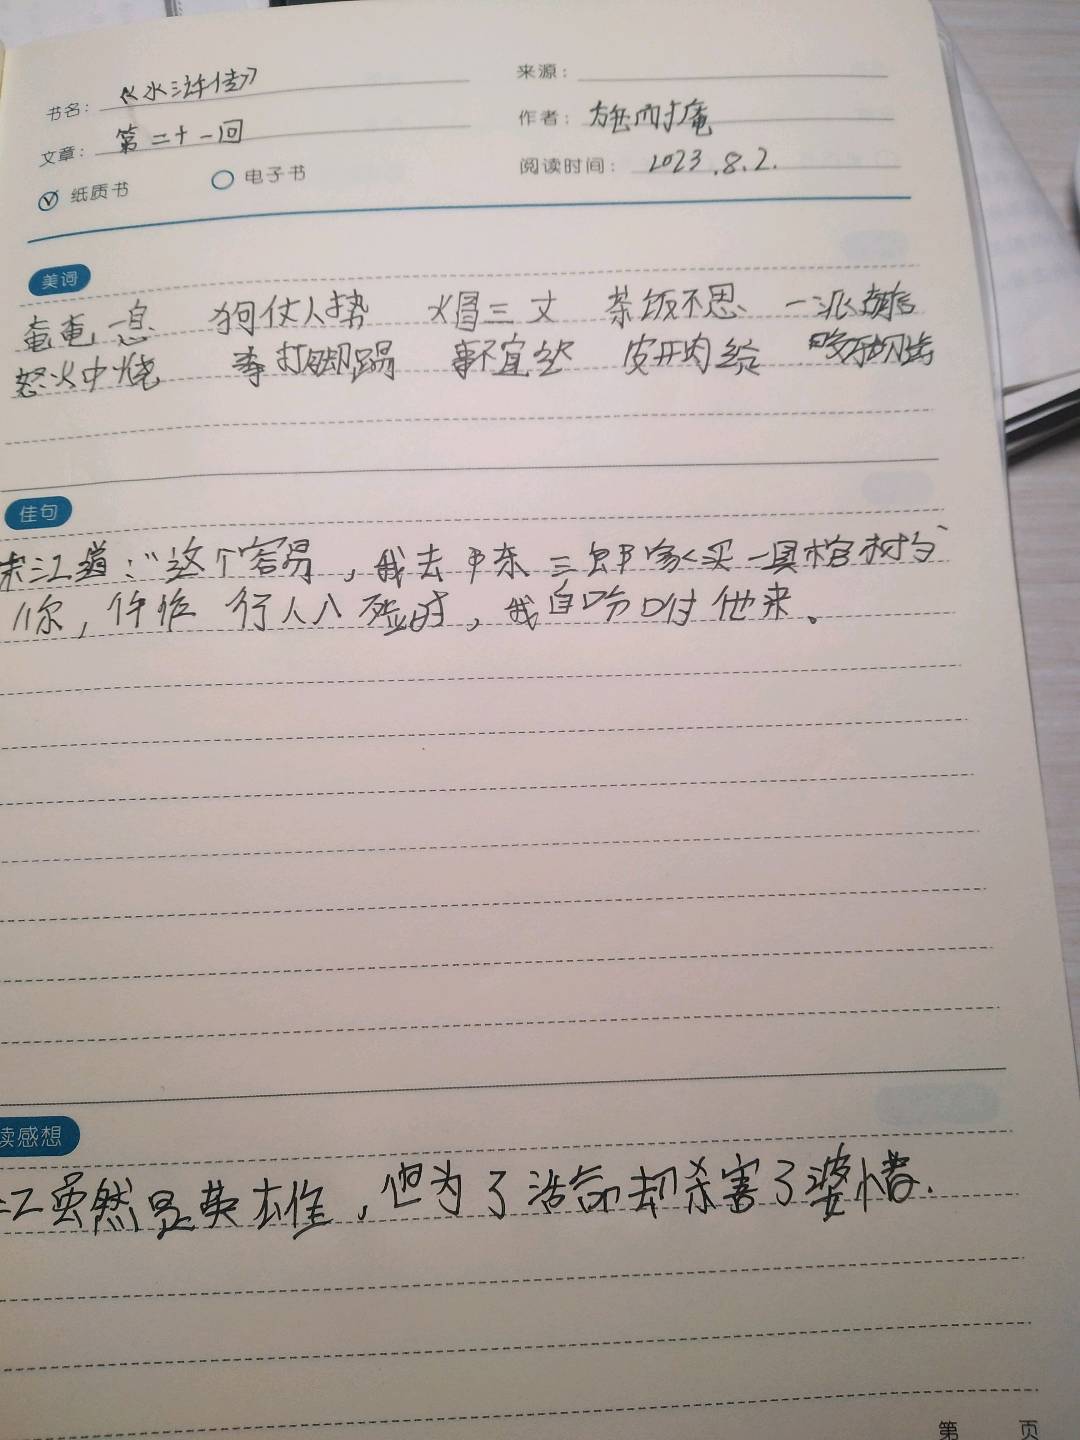 书名： 《水浒传》
来源：
文章： 第二十一回
作者： 施耐庵
纸质书 电子书
阅读时间： 2023.8.2.
美词
奄奄一息 狗仗人势 火冒三丈 茶饭不思 一派胡言
怒火中烧 拳打脚踢 事不宜迟 皮开肉绽 咬牙切齿
佳句
宋江道：“这个容易，我去陈三郎家买一具棺材与
你，仵作行人入殓时，我自吩咐他来。
读感想
江虽然是英雄，但为了活命却杀害了婆惜.
第 页